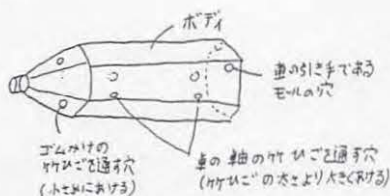 ボディ
車の引き手である
モールの穴
ゴムかけの
竹ひごを通す穴
(小さめにあける)
車の軸の竹ひごを通す穴
(竹ひごの太さより大きくあける)